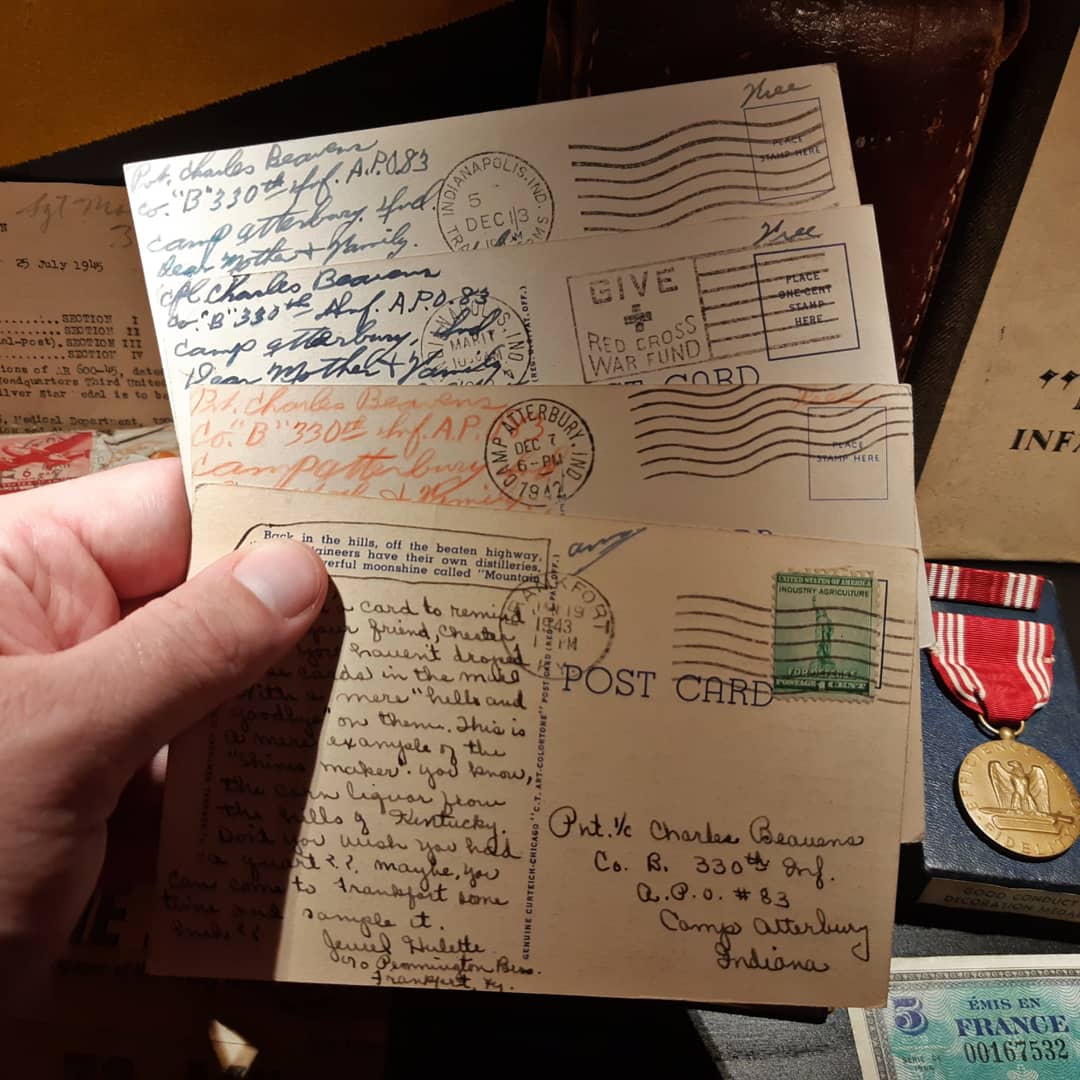 Free
PLACE
STAMP HERE
Pvt. Charles Beavens
Co. "B" 330th Inf. A.P.O. 83
Camp Atterbury, Ind.
Dear Mother & Family.
INDIANAPOLIS, IND.
5
DEC 13
Free
PLACE
ONE CENT
STAMP
HERE
GIVE
RED CROSS
WAR FUND
Cpl Charles Beavens
Co. "B" 330th Inf. A.P.O. 83
Camp Atterbury, Ind
Dear Mother & Family
MAR 17
POST CARD
Pvt. Charles Beavens
Co. "B" 330th Inf. A.P.
Camp Atterbury
& Family
CAMP ATTERBURY, IND.
DEC 7
6-PM
1942
PLACE
STAMP HERE
Back in the hills, off the beaten highway,
taineers have their own distilleries.
erful moonshine called "Mountain
card to remind
your friend, Chester
you haven't droped
cards in the mail
with a mere "hello and
goodbye" on them. This is
a mere example of the
"Shine maker. You know,
the corn liquor from
the hills of Kentucky.
Don't you wish you had
a quart?? maybe, you
can come to Frankfort some
time and sample it.
Jewel Hulette
c/o Pennington Bros.
Frankfort, Ky.
Army
FRANKFORT
19
1943
PM
GENUINE CURTEICH-CHICAGO "C.T. ART-COLORTONE" POST CARD (REG. U.S. PAT. OFF.)
POST CARD
UNITED STATES OF AMERICA
INDUSTRY AGRICULTURE
FOR DEFENSE
POSTAGE 1 CENT
Pvt. 1/c Charles Beavens
Co. B. 330th Inf.
A.P.O. # 83
Camp Atterbury
Indiana
Sgt
25 July 1945
SECTION I
SECTION II
SECTION III
SECTION IV
ions of AR 600-45,
eadquarters Third United
ilver Star
Medical Department,
6
INFA
EFFICIENCY
FIDELITY
GOOD CONDUCT
DECORATION MEDAL
5
ÉMIS EN
FRANCE
00167532
SERIE DE